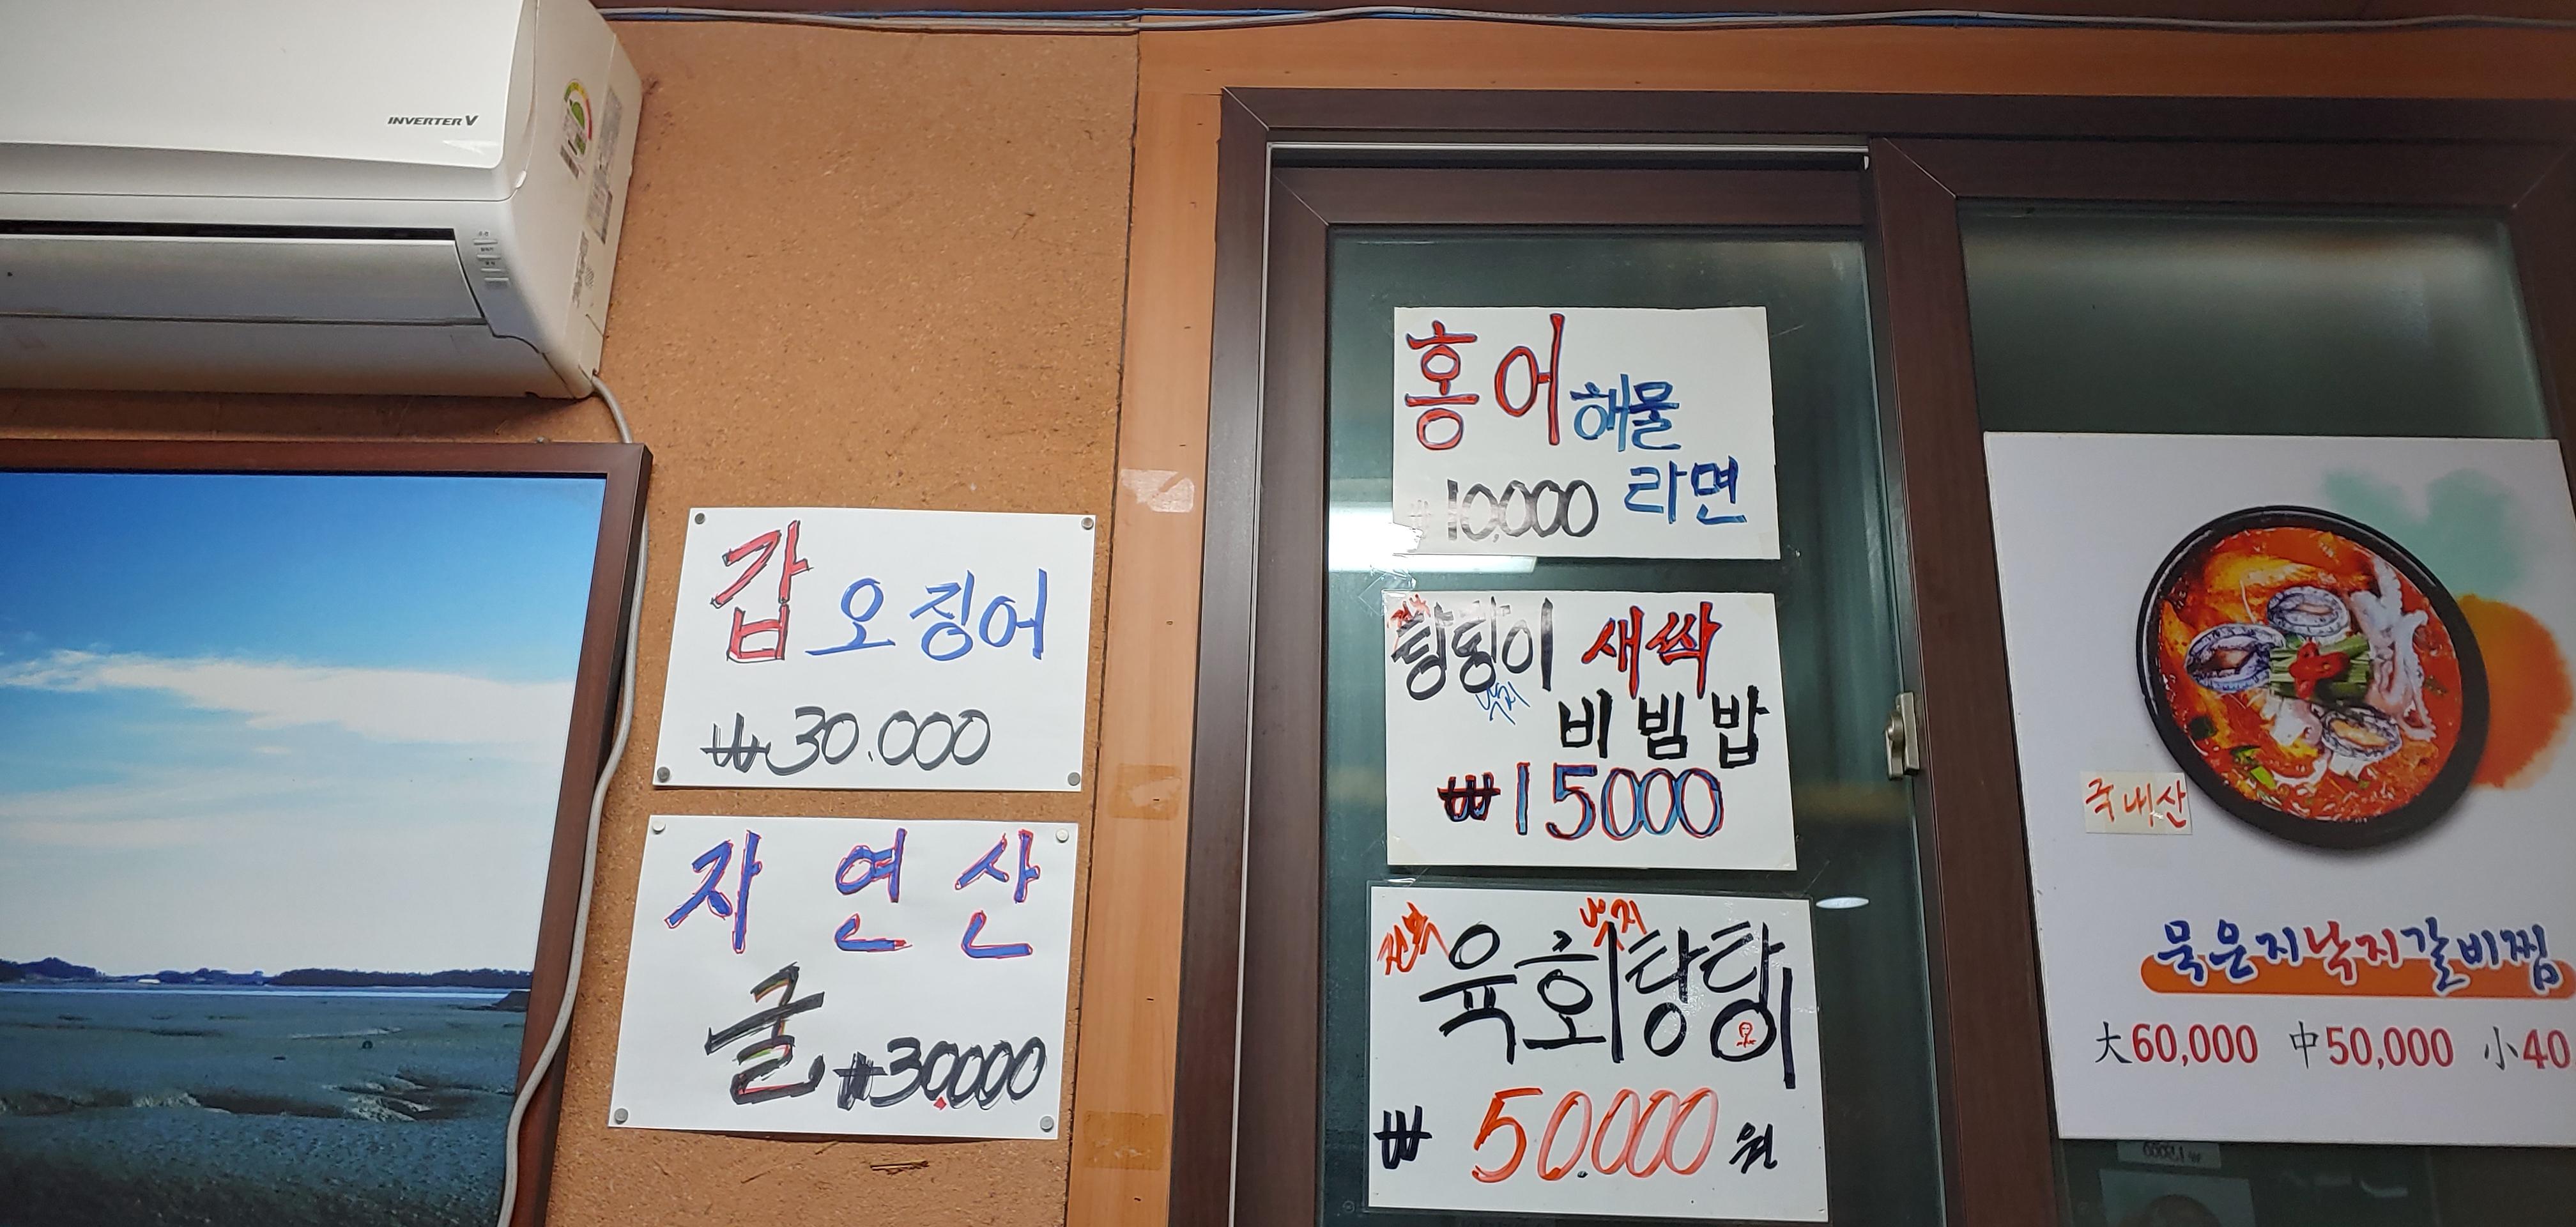 INVERTER V
갑오징어
₩30.000
자연산
굴 ₩30.000
홍어해물
라면
₩10,000
탕탕이 새싹
낙지
비빔밥
₩15000
전복 낙지
육회탕탕이
₩50.000원
국내산
묵은지낙지갈비찜
大60,000 中50,000 小40